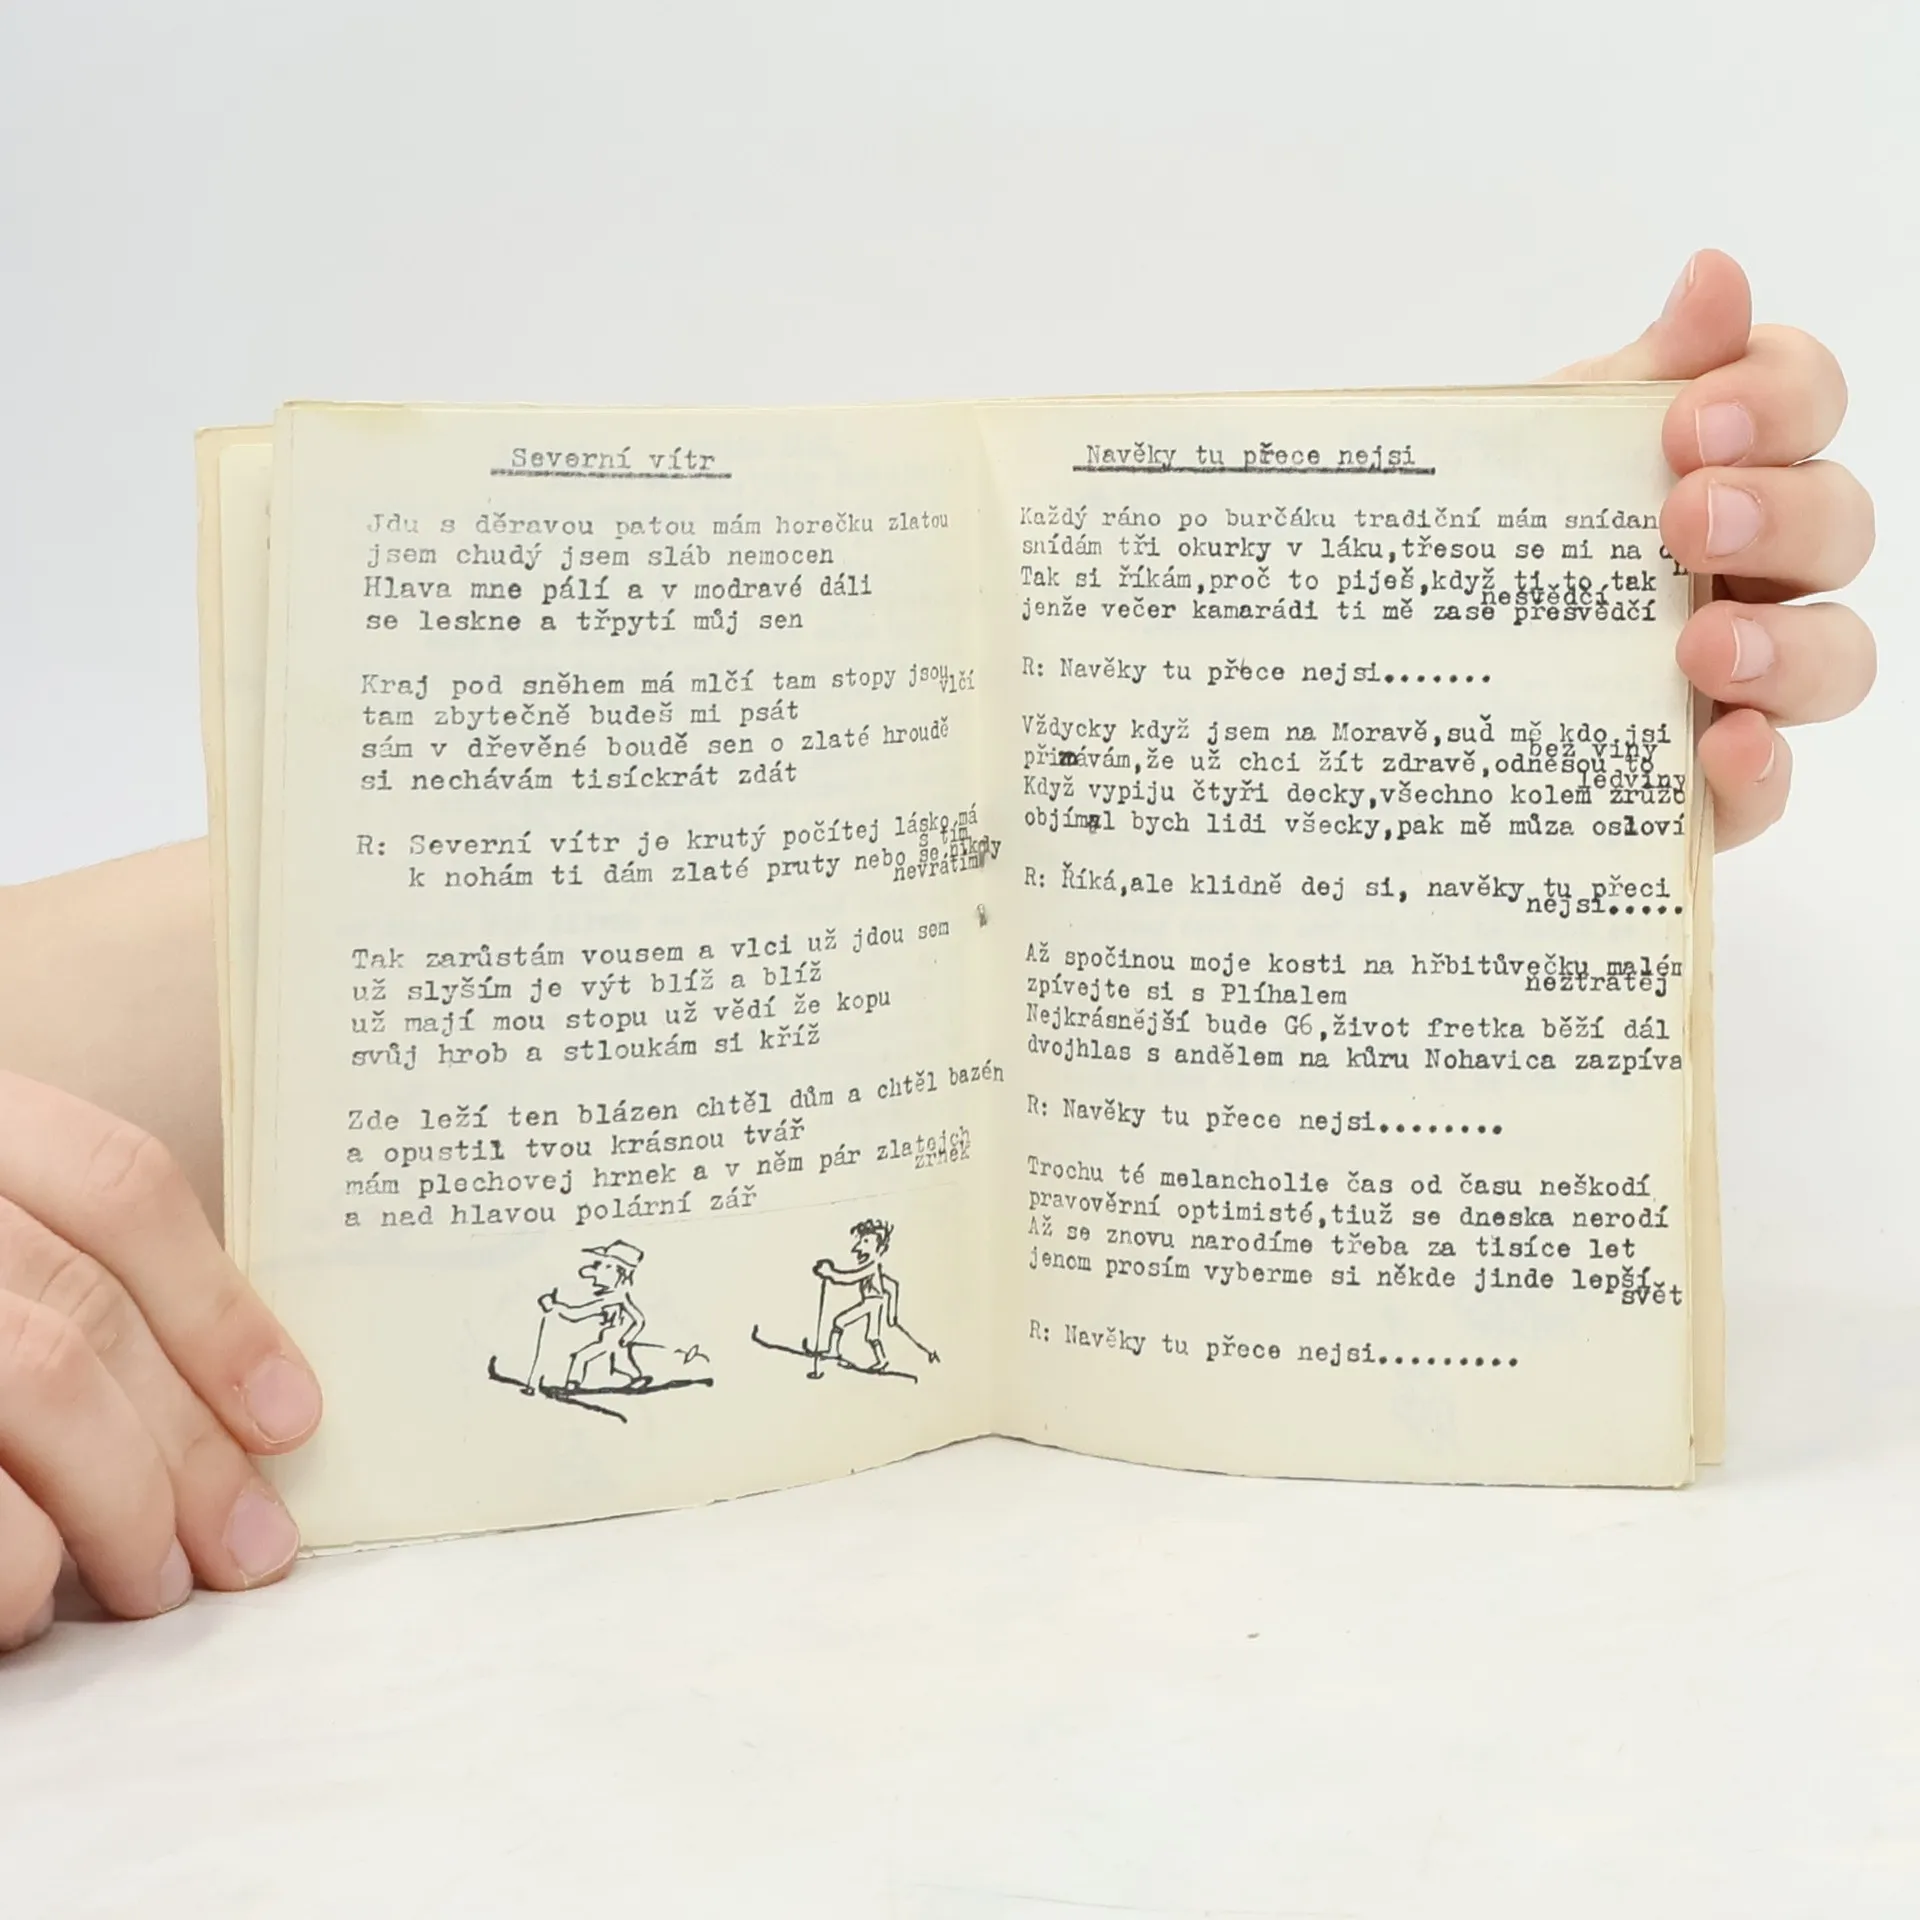 Severní vítr
Jdu s děravou patou mám horečku zlatou
jsem chudý jsem sláb nemocen
Hlava mne pálí a v modravé dáli
se leskne a třpytí můj sen
Kraj pod sněhem má mlčí tam stopy jsou
vlčí
tam zbytečně budeš mi psát
sám v dřevěné boudě sen o zlaté hroudě
si nechávám tisíckrát zdát
R: Severní vítr je krutý počítej lásko má
s tím
k nohám ti dám zlaté pruty nebo se nikdy
nevrátím
Tak zarůstám vousem a vlci už jdou sem
už slyším je výt blíž a blíž
už mají mou stopu už vědí že kopu
svůj hrob a stloukám si kříž
Zde leží ten blázen chtěl dům a chtěl bazén
a opustil tvou krásnou tvář
mám plechovej hrnek a v něm pár zlatejch
zrnek
a nad hlavou polární zář
Navěky tu přece nejsi
Každý ráno po burčáku tradiční mám snídan
snídám tři okurky v láku,třesou se mi na
Tak si říkám,proč to piješ,když ti to tak
nesvědčí
jenže večer kamarádi ti mě zase přesvědčí
R: Navěky tu přece nejsi.......
Vždycky když jsem na Moravě,suď mě kdo jsi
bez viny
přiznávám,že už chci žít zdravě,odnesou to
ledviny
Když vypiju čtyři decky,všechno kolem zrůžo
objímal bych lidi všecky,pak mě můza osloví
R: Říká,ale klidně dej si, navěky tu přeci
nejsi.....
Až spočinou moje kosti na hřbitůvečku malém
neztratěj
zpívejte si s Plíhalem
Nejkrásnější bude G6,život fretka běží dál
dvojhlas s andělem na kůru Nohavica zazpíva
R: Navěky tu přece nejsi........
Trochu té melancholie čas od času neškodí
pravověrní optimisté,tiuž se dneska nerodí
Až se znovu narodíme třeba za tisíce let
jenom prosím vyberme si někde jinde lepší
svět
R: Navěky tu přece nejsi.........